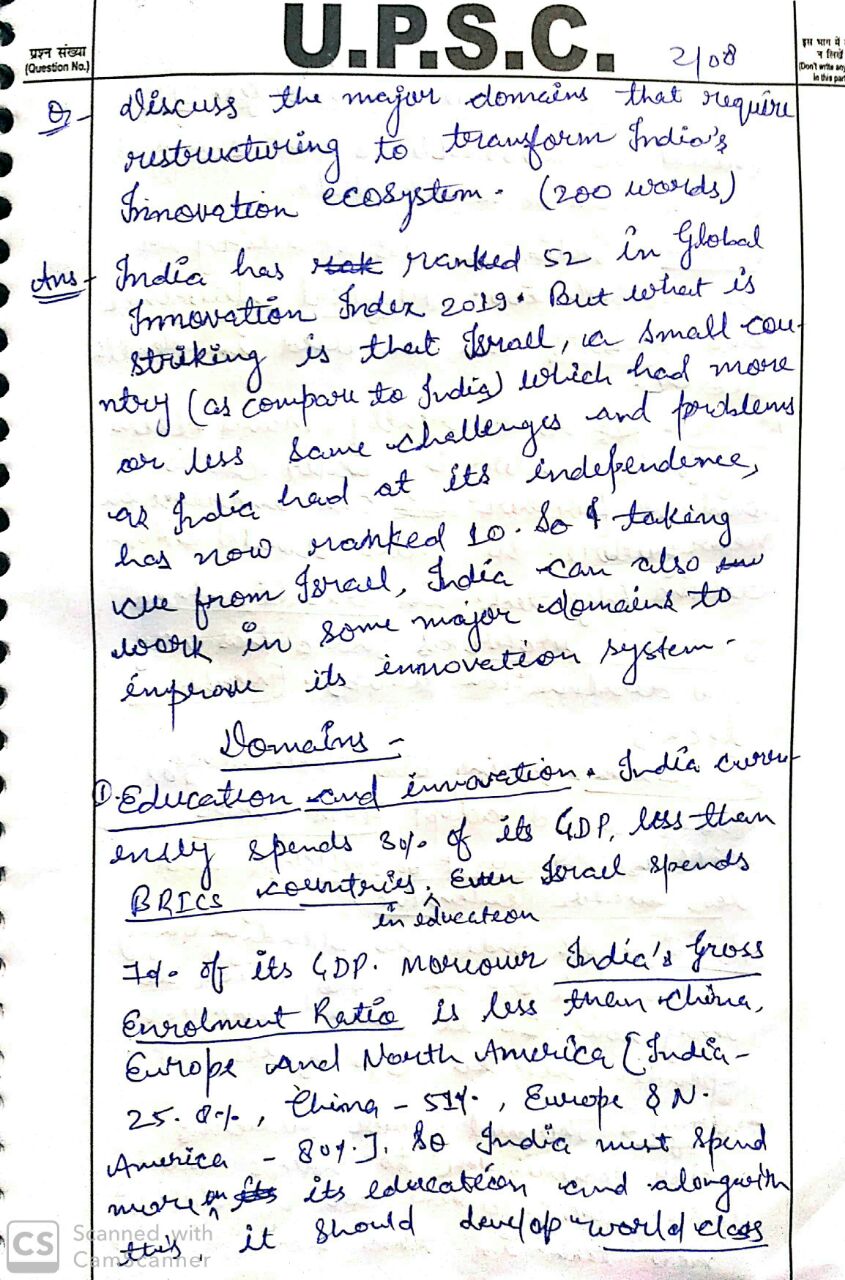 U.P.S.C.
प्रश्न संख्या
(Question No.)
2/08
इस भाग में
न लिखें
(Don't write any
in this part
Q- Discuss the major domains that require
restructuring to transform India's
Innovation ecosystem. (200 words)
Ans- India has ranked 52 in Global
Innovation Index 2019. But what is
striking is that Israel, a small cou-
ntry (as compare to India) which had more
or less same challenges and problems
as India had at its independence,
has now ranked 10. So taking
cue from Israel, India can also
work in some major domains to
improve its innovation system.
Domains -
① Education and innovation. India curr-
ently spends 3% of its GDP, less than
BRICS countries. Even Israel spends
in education
7% of its GDP. Moreover India's Gross
Enrolment Ratio is less than China,
Europe and North America [India-
25.8%, China - 51%, Europe & N.
America - 80%]. So India must spend
more on its education and alongwith
this, it should develop "world class
CS Scanned with
CamScanner